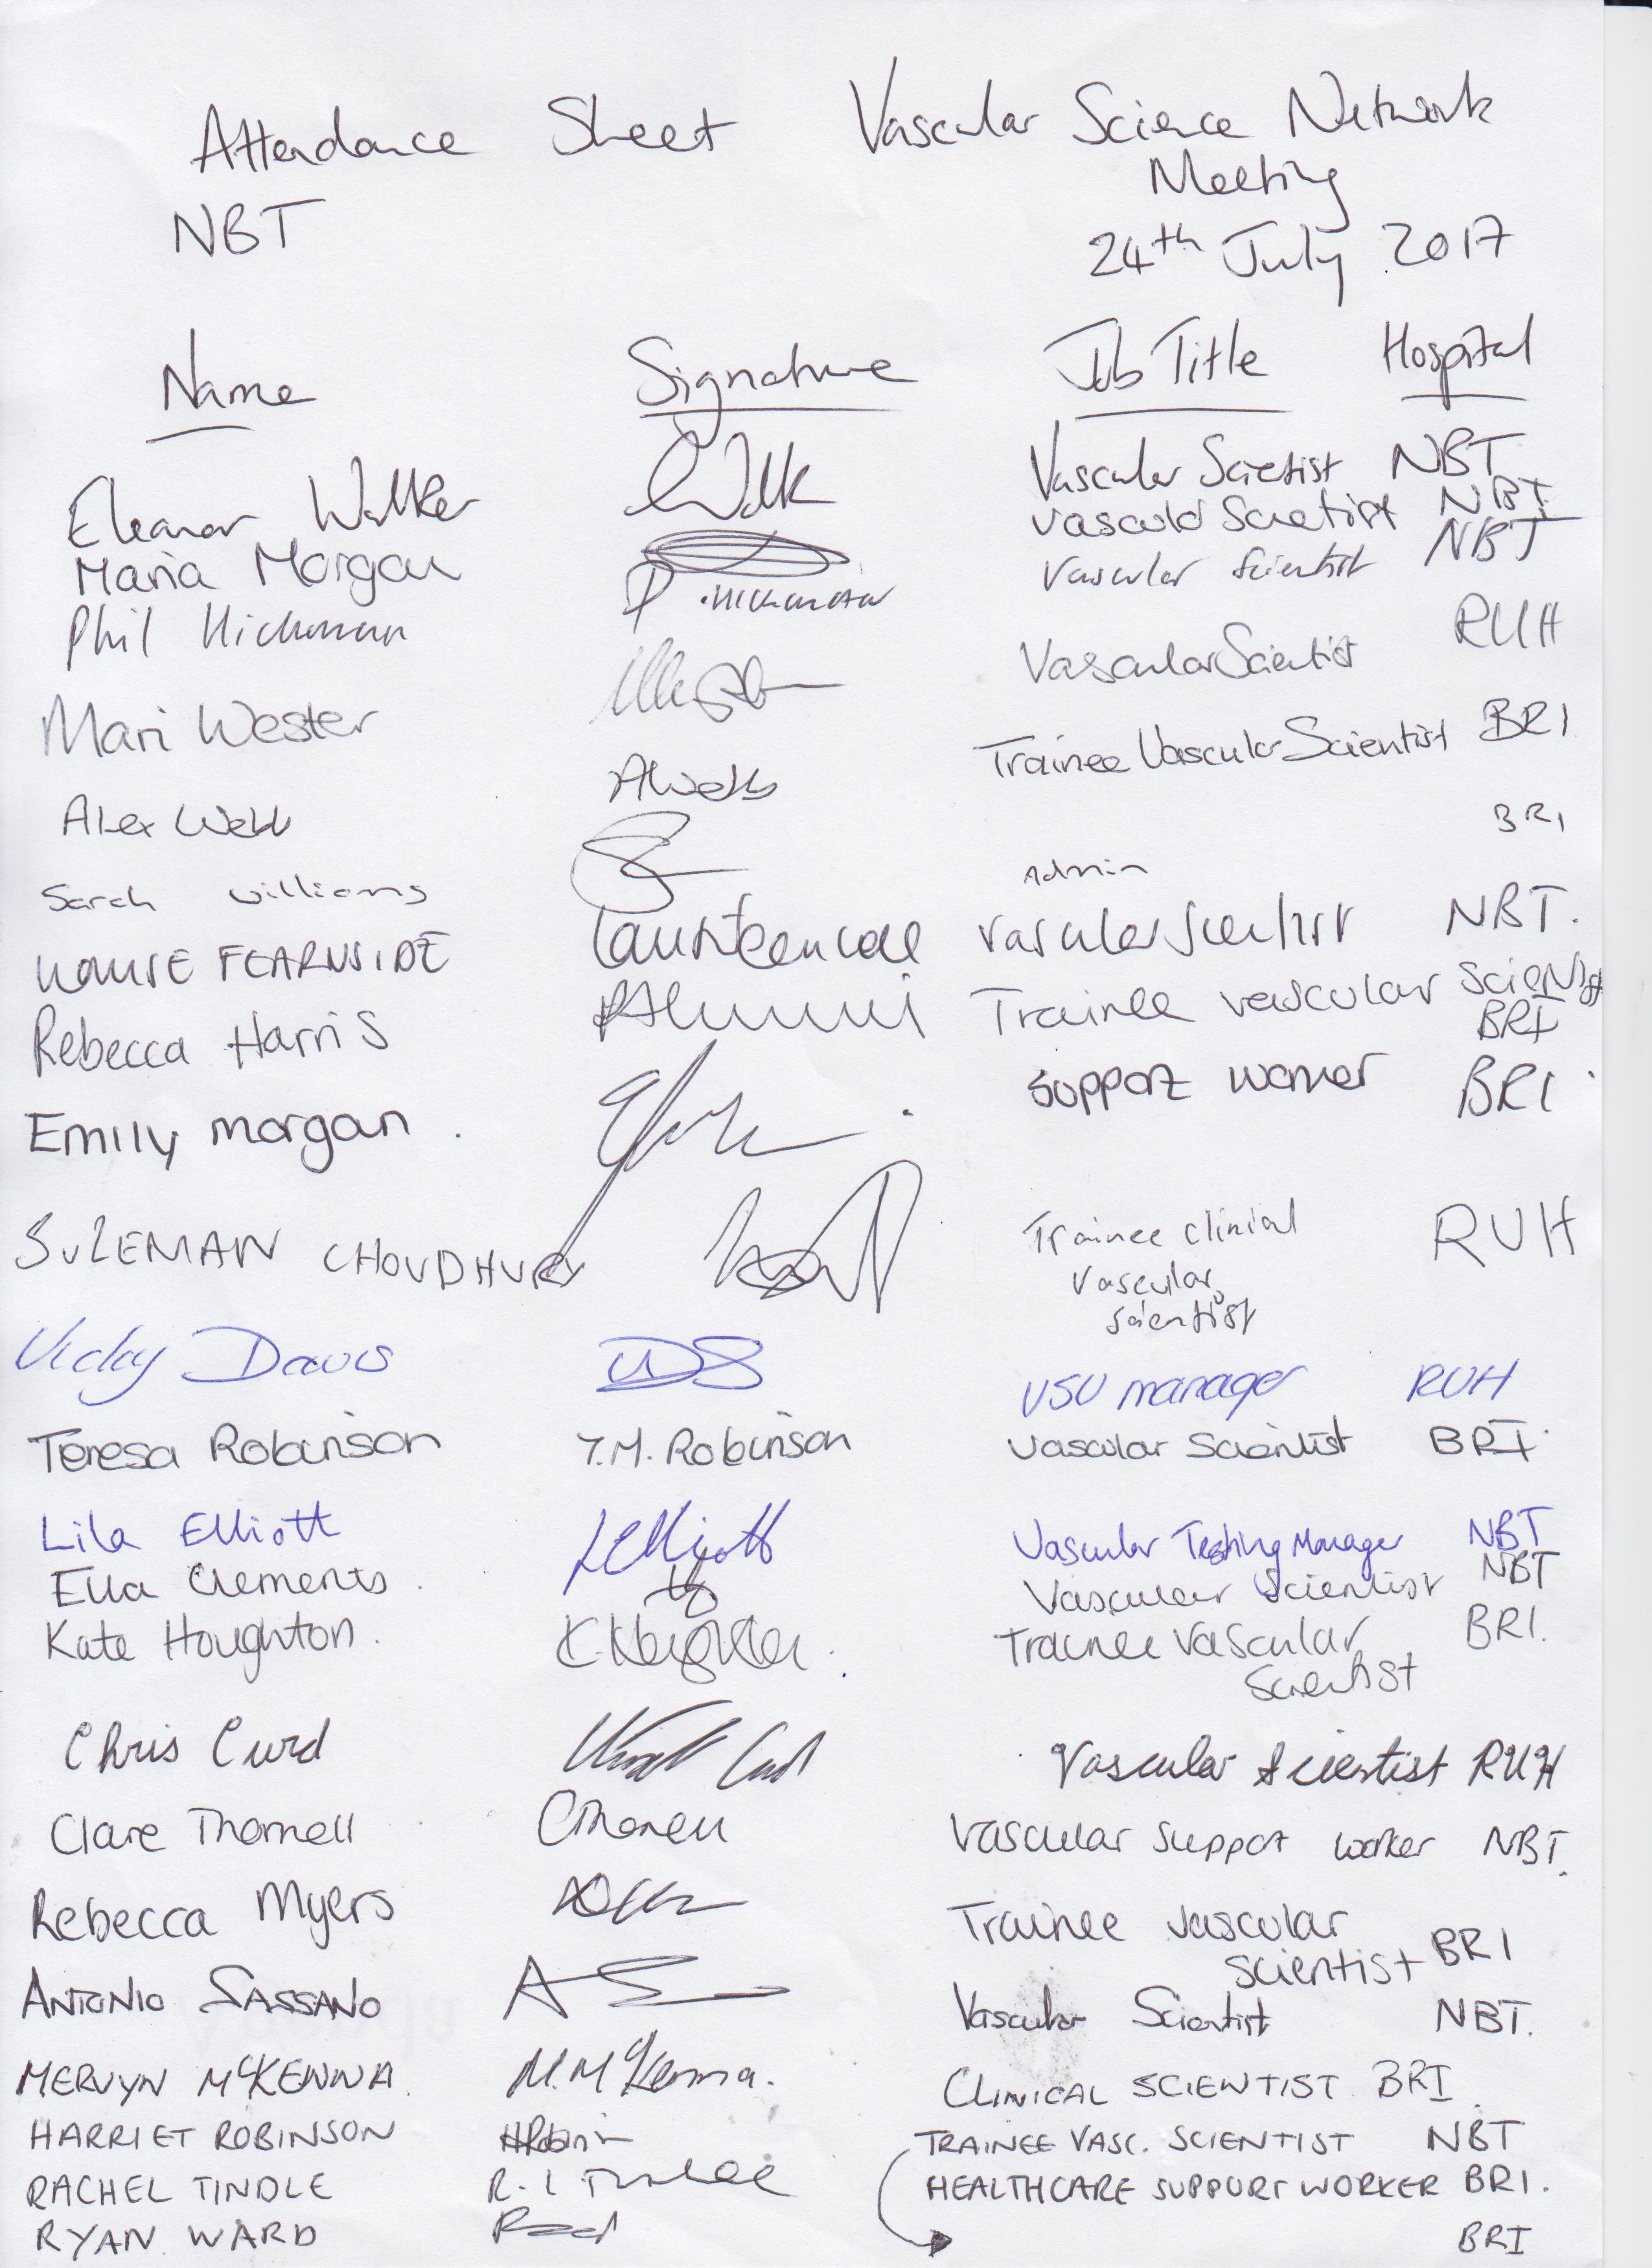 Attendance Sheet Vascular Science Network
Meeting
NBT
24th July 2017
Name Signature Job Title Hospital
Eleanor Walker Vascular Scientist NBT
Maria Morgan Vascular Scientist NBT
Phil Hickman P. Hickman Vascular Scientist NBT
Mari Wester Vascular Scientist RUH
Alex Webb AWebb Trainee Vascular Scientist BRI
Sarah Williams Admin BRI
LOUISE FEARNSIDE Vascular Scientist NBT.
Rebecca Harris Trainee vascular scientist
BRI
Emily morgan. support worker BRI
SULEMAN CHOUDHURY Trainee clinical RUH
vascular
scientist
Vicky Davis VSU manager RUH
Teresa Robinson T.M. Robinson Vascular Scientist BRI.
Lila Elliott LElliott Vascular Testing Manager NBT
Ella Clements. Vascular Scientist NBT
Kate Houghton. K.Houghton. Trainee Vascular BRI.
Scientist
Chris Curd Vascular Scientist RUH
Clare Thornell CThornell Vascular support worker NBT.
Rebecca Myers Trainee vascular
scientist BRI
ANTONIO SASSANO Vascular Scientist NBT.
MERVYN McKENNA. M. McKenna. CLINICAL SCIENTIST BRI.
HARRIET ROBINSON HRobinson TRAINEE VASC. SCIENTIST NBT
RACHEL TINDLE R. L Tindle HEALTHCARE SUPPORT WORKER BRI.
RYAN WARD BRI